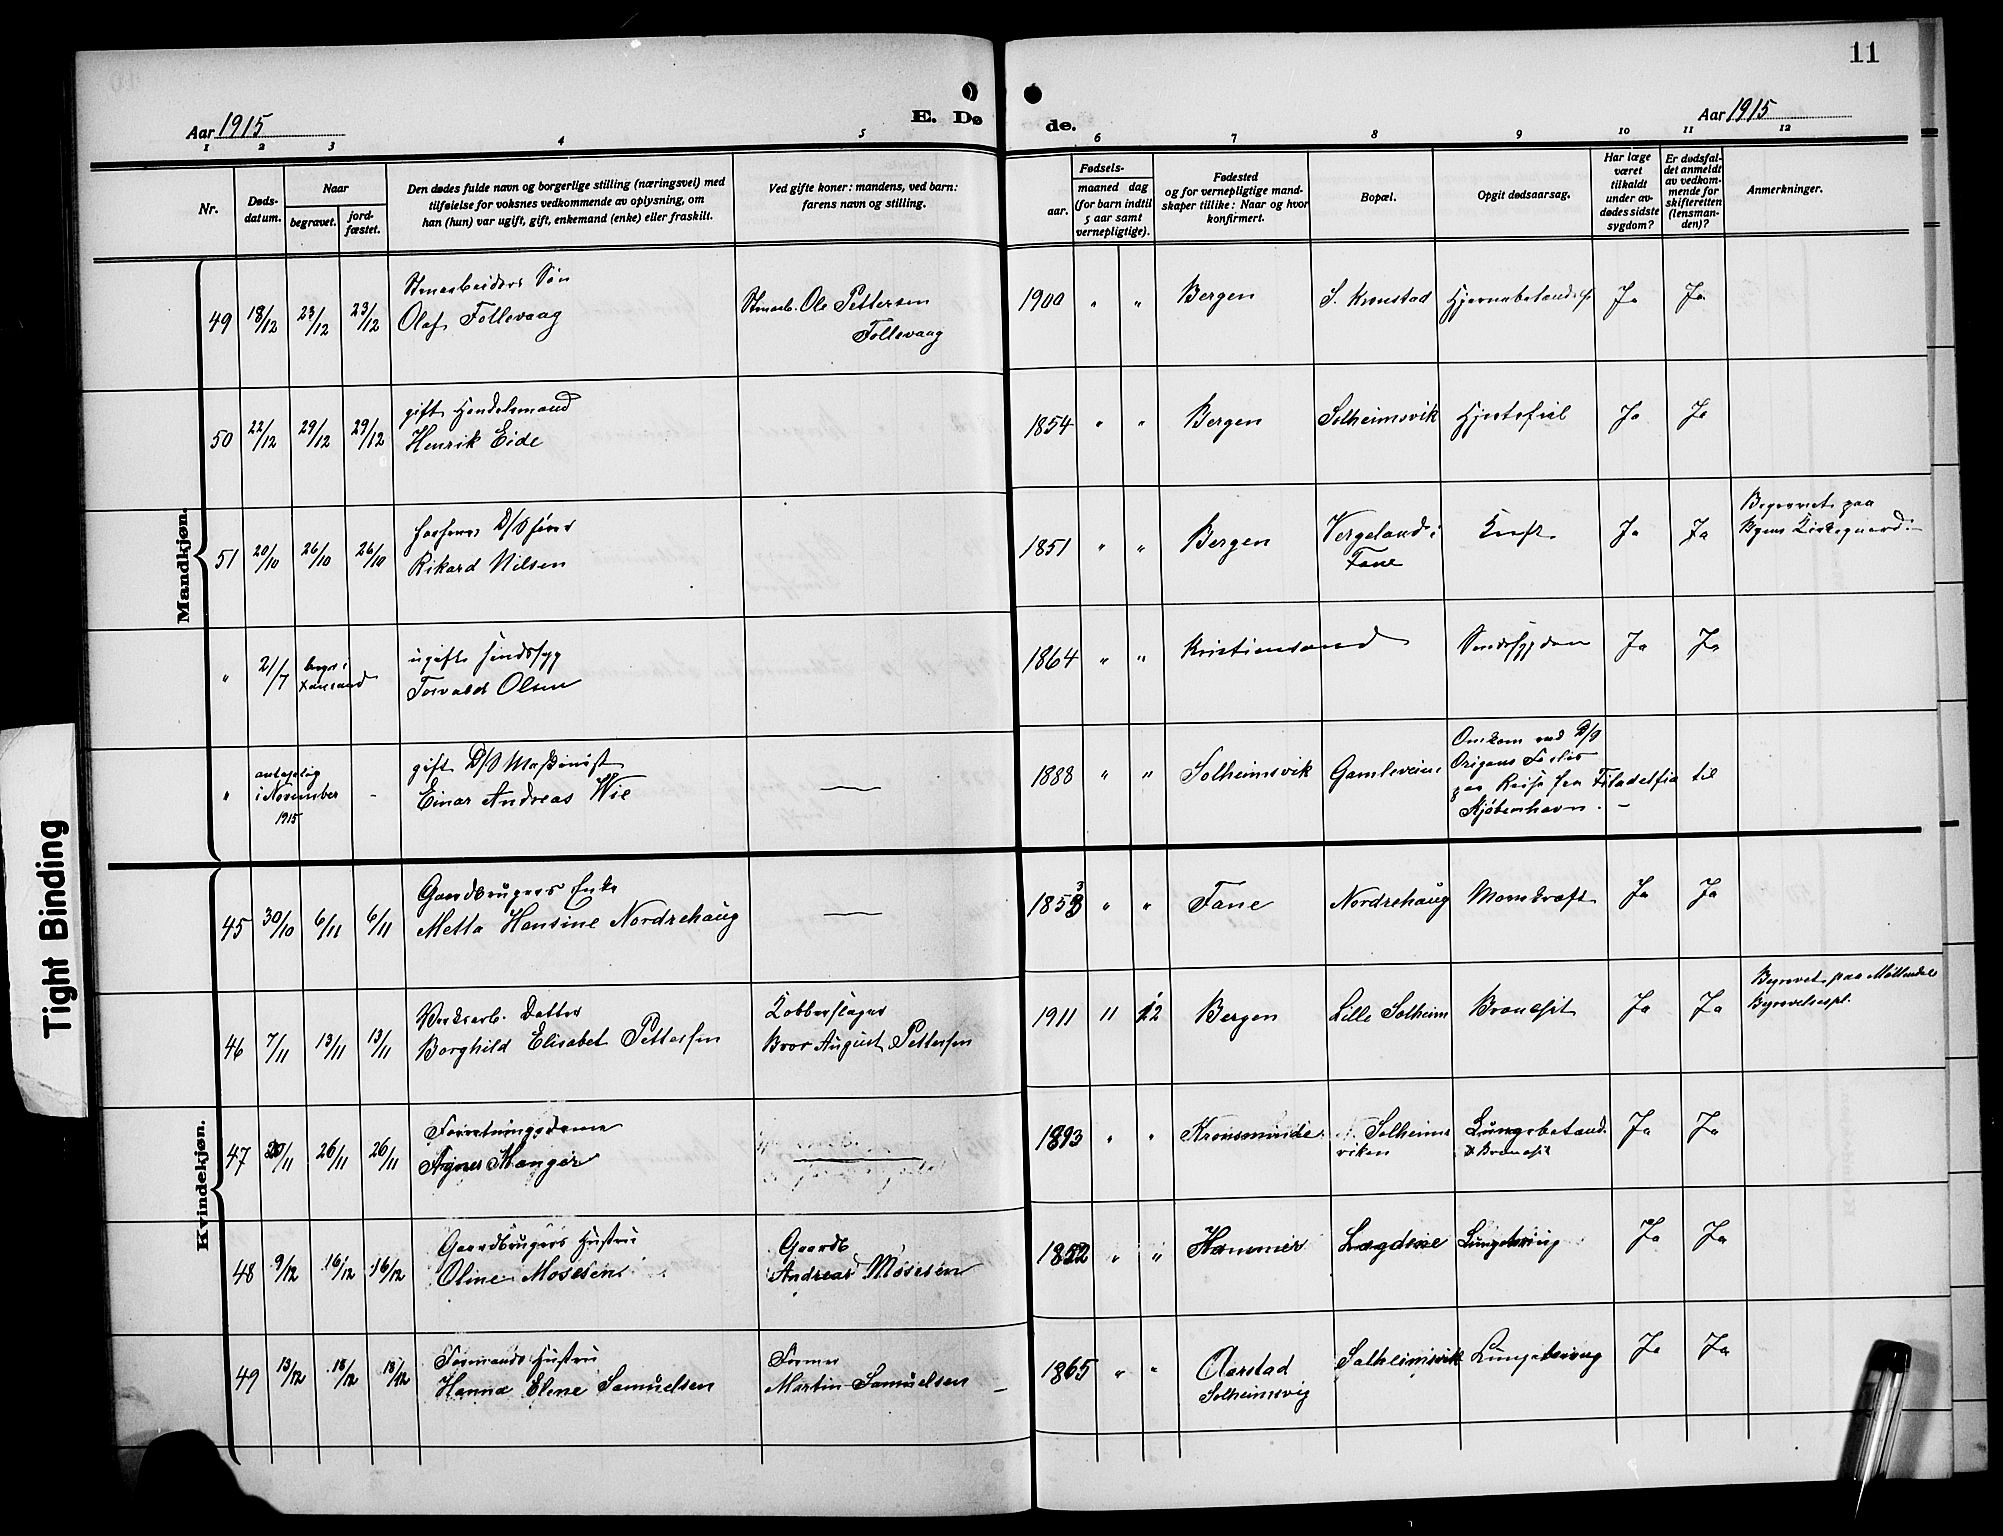 11
Aar 1915
E. Dø
de.
Aar 1915
1 2 3 4 5 6 7 8 9 10 11 12
Nr.
Døds-
datum.
Naar
begravet.
jord-
fæstet.
Den dødes fulde navn og borgerlige stilling (næringsvei) med
tilføielse for voksnes vedkommende av oplysning, om
han (hun) var ugift, gift, enkemand (enke) eller fraskilt.
Ved gifte koner: mandens, ved barn:
farens navn og stilling.
Fødsels-
aar.
maaned dag
(for barn indtil
5 aar samt
vernepligtige).
Fødested
og for vernepligtige mand-
skaper tillike: Naar og hvor
konfirmert.
Bopæl.
Opgit dødsaarsag.
Har læge
været
tilkaldt
under av-
dødes sidste
sygdom?
Er dødsfal-
det anmeldt
av vedkom-
mende for
skifteretten
(lensman-
den)?
Anmerkninger.
Mandkjøn.
Stenarbeiders Søn
49 18/12 23/12 23/12 Olaf Follevaag
Stenarb. Ole Pettersen
Follevaag
1900 " " Bergen S. Kronstad Ja Ja
gift Handelsmand
50 22/12 29/12 29/12 Henrik Eide
1854 " " Bergen Solheimsvik Hjertefeil Ja Ja
51 20/10 26/10 26/10 Rikard Nilsen
1851 " " Bergen Vergeland i
Fane
Kræft Ja Ja
Begravet paa
Byens Kirkegaard
ugift sindssyg
" 21/7 begr. i
Xansand
Torvald Olsen
1864 " " Kristiansand Ja Ja
gift D/S Maskinist
" antagelig
i November
1915
- Einar Andreas Wie
1888 " " Solheimsvik Gamleveien
Omkom med D/S
paa Reise fra Filadelfia til
Kjøbenhavn. -
Kvindekjøn.
Gaardbrugers Enke
45 30/10 6/11 6/11 Metta Hansine Nordrehaug
1853 " " Fane Nordrehaug Mavekræft Ja Ja
Verksarb. Datter
46 7/11 13/11 13/11 Borghild Elisabet Pettersen
Kobberslager
Bror August Pettersen
1911 11 12 Bergen Lille Solheim Broncit Ja Ja
Begravet paa Møllendal
Forretningsdame
47 20/11 26/11 26/11 Agnes Manger
1893 " " Kronsminde Solheims
viken
Lungebetænd.
& Broncit
Ja Ja
Gaardbrugers Hustru
48 9/12 16/12 16/12 Oline Mosesen
Gaardb
Andreas Mosesen
1852 " " Hammer Lægdene Ja Ja
Formands Hustru
49 13/12 18/12 18/12 Hanna Elene Samuelsen
Former
Martin Samuelsen
1865 " " Aarstad
Solheimsvig
Solheimsvik Ja Ja
Tight Binding